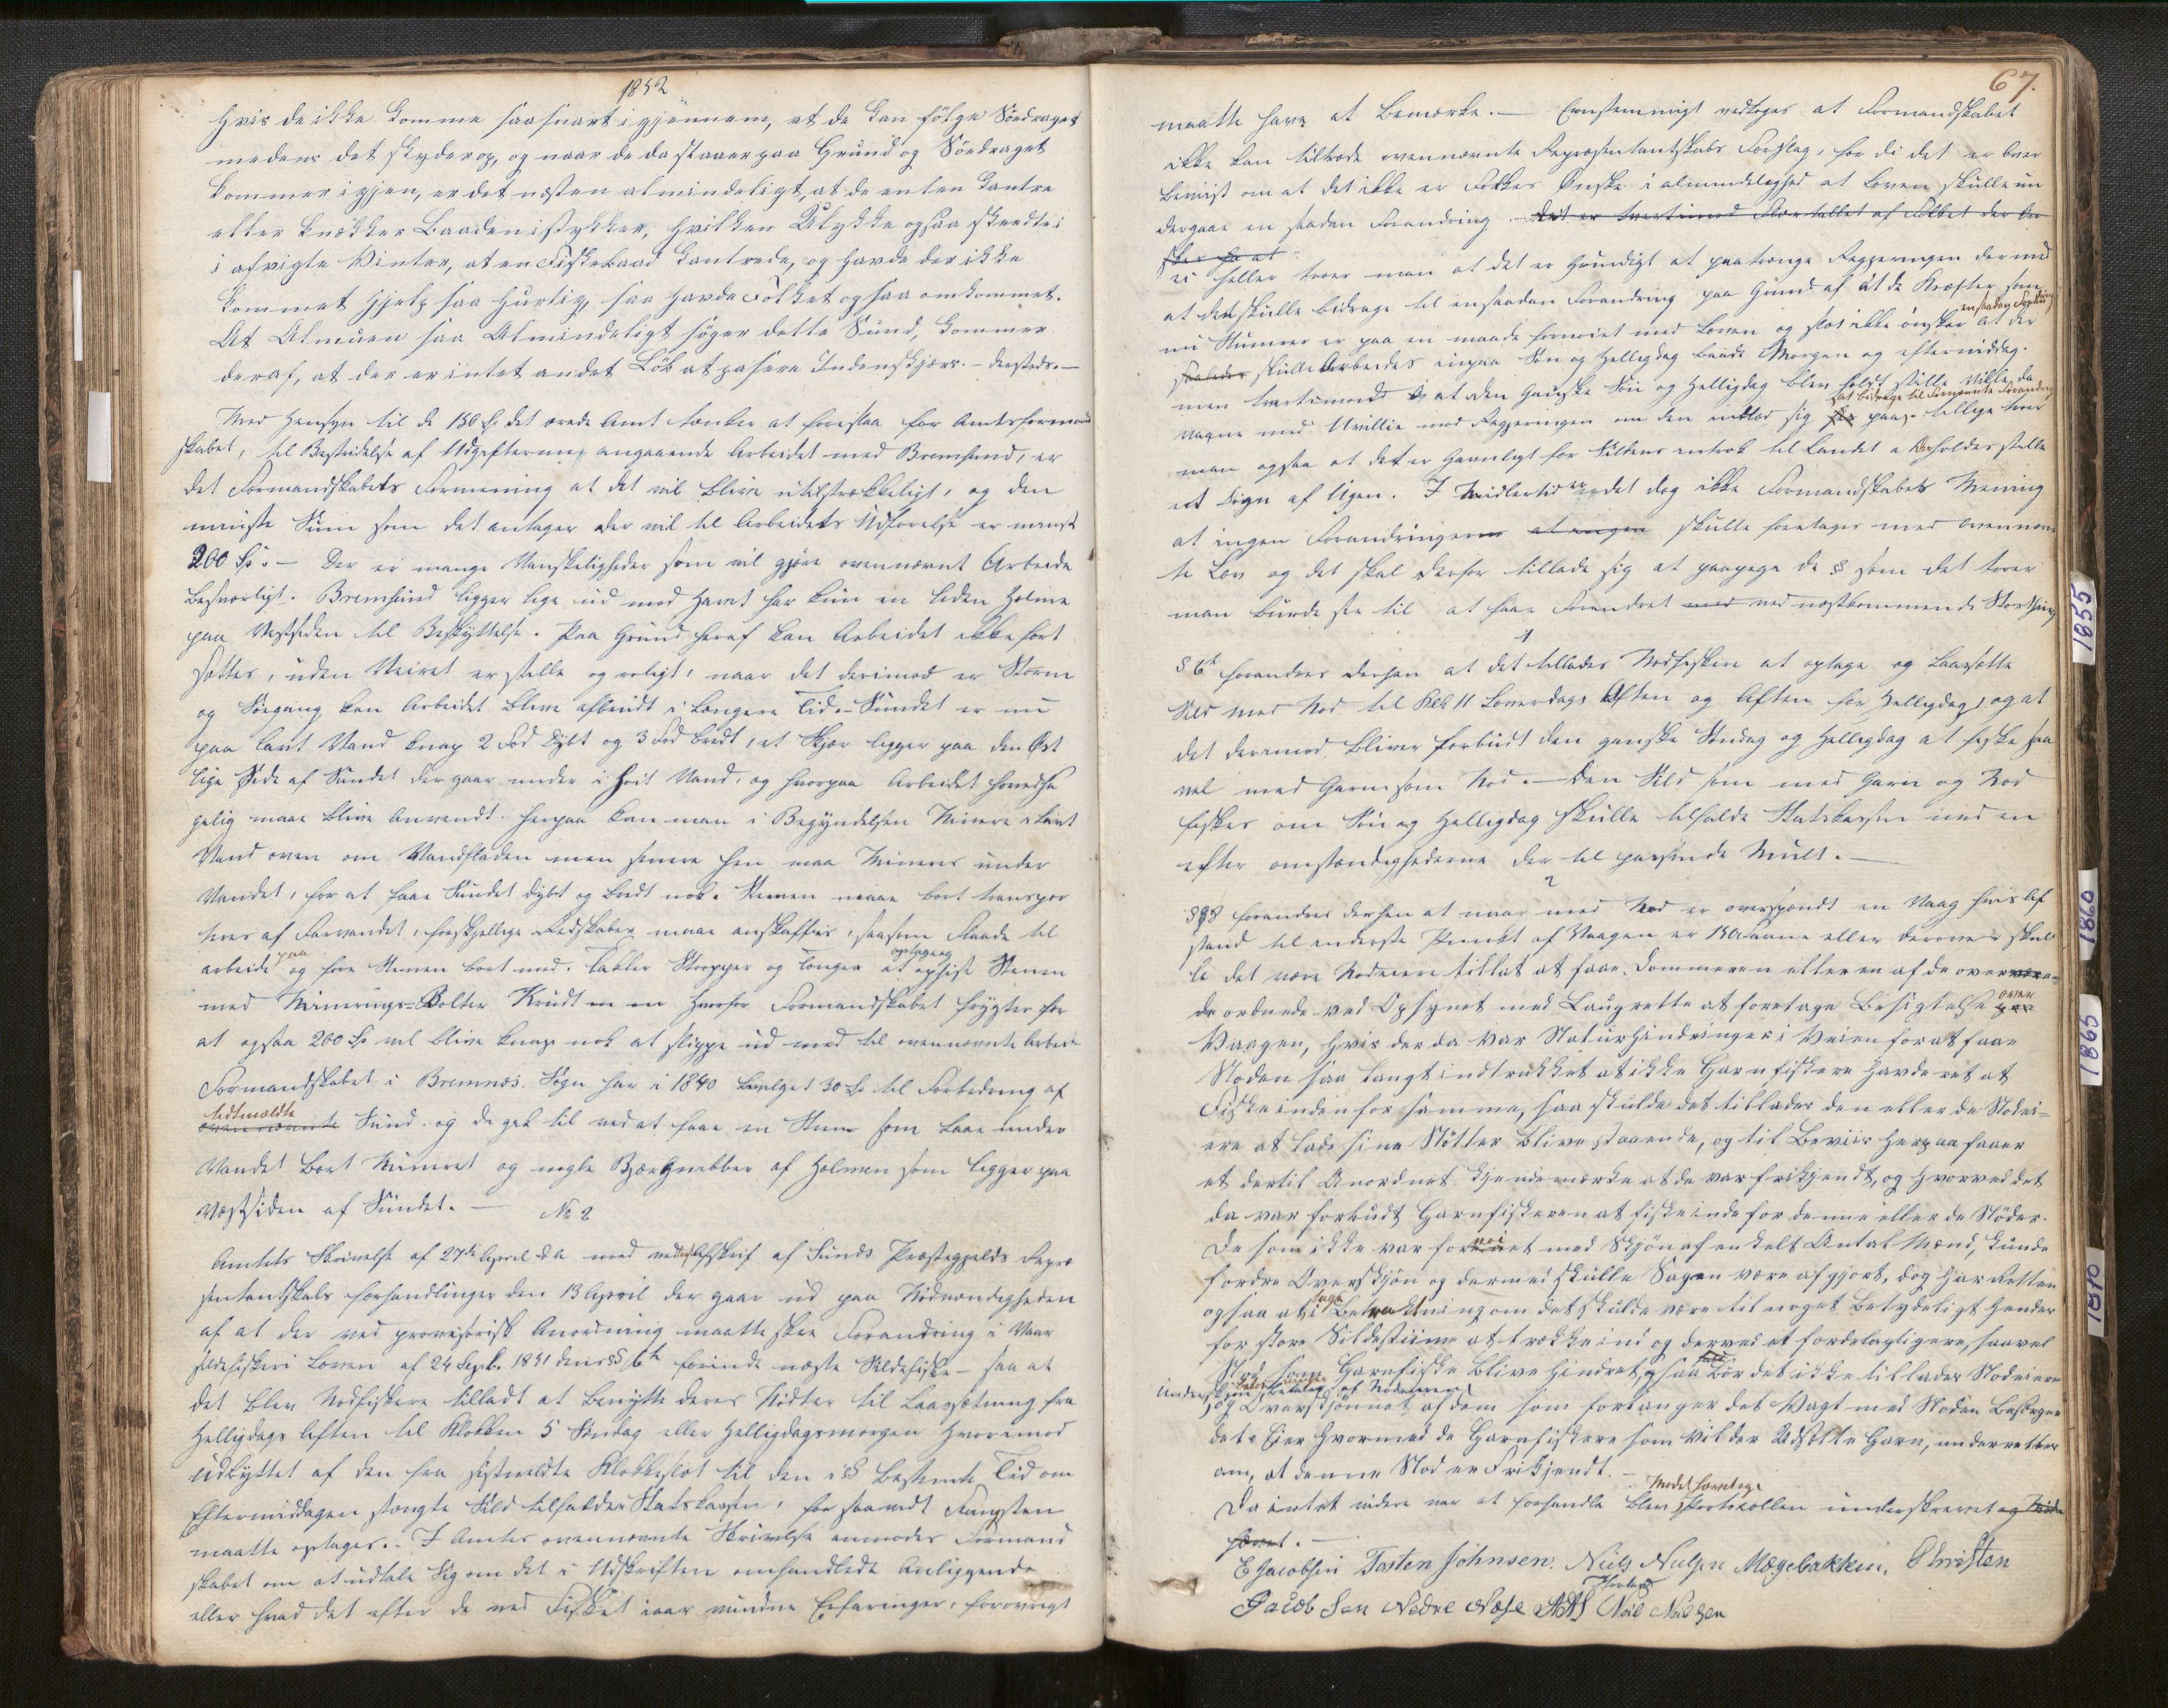 1852
hvis de ikke komme saasnart igjennem, at de kan følge Söedraget
medens det skyder op, og naar de da staaer paa Grund og Söedraget
kommer igjen, er det næsten almindeligt, at de enten kantre
eller knækker Baaden i stykker, hvilken Ulykke ogsaa skeedte i
i afvigte Vinter, at en Fiskebaad kantrede, og havde der ikke
kommet Hjelp saa hurtig, saa havde Folket ogsaa omkommet.
At Almuen saa Almindeligt søger dette Sund, kommer
deraf, at der er intet andet Løb at pasere Indenskjærs. – dersteds. –
Med Hensyn til de 150 Sp det ærede Amt tænker at foreslaa for Amtsformand
skabet, til Bestridelse af Udgifterne angaaende Arbeidet med Bremsund, er
det Formandskabets Formening at det vil blive utilstrækkeligt, og den
mindste Sum som det antager der vil til Arbeidets Udførelse er mindst
200 Sp. – Der er mange Vanskeligheder som vil gjøre ovennævnt Arbeide
besværligt. Bremsund ligger lige ud mod Havet har kun en liden Holme
paa Vestsiden til Beskyttelse. Paa Grund heraf kan Arbeidet ikke fort
sættes, uden Veiret er stille og roligt, naar det derimod er Storm
og Søegang kan Arbeidet blive afbrudt i længere Tid. – Sundet er nu
paa lavt Vand knap 2 Fod dybt og 3 Fod bredt, et Skjær ligger paa den Øst
lige Side af Sundet der gaar under i høit Vand, og hvorpaa Arbeidet hovedsa
gelig maae blive anvendt. herpaa kan man i Begyndelsen Minere i lavt
Vand oven om Vandfladen men senere hen maa Mineres under
Vandet, for at faae Sundet dybt og bredt nok. Stenen maae bort transpor
teres af Farvandet, forskjellige Redskaber maae anskaffes, saasom Flaade til
arbeide paa og føre Stenen bort med. Tabler Stropper og Tenger at optage og ophise Stenen
med Minerings-Bolter Krudt m m Hvorfor Formandskabet frygter for
at ogsaa 200 Sp vil blive knap nok at slippe ud med til ovennævnte Arbeide
Formandskabet i Bremnes Sogn har i 1840 bevilget 30 Sp til Forbedring af
sidtmældte ovennævnte Sund. og de gik til ved at faae en Steen som laae under
Vandet bort Mineret og nogle Bjærgnabber af Holmen som ligger paa
Vestsiden af Sundet. –
No 2
Amtets Skrivelse af 27de April d A med vedlagt Afskrif af Sunds Præstegjelds Repræ
sentantskabs forhandlinger den 13 April der gaar ud paa Nødvendigheden
af at der ved provisorisk Anordning maatte skee Forandring i Vaar
sildefiskeri Loven af 24 Septb. 1851 dens § 6te forinde næste Sildefiske – saa at
det blev Nodfiskere tilladt at benytte deres Nødter til Laassætning fra
Helligdags Aften til Klokken 5 Søndag eller Helligdagsmorgen Hvorimod
Udbyttet af den fra sistmeldte Klokkeslet til den i § bestemte Tid om
Eftermiddagen stængte Sild tilfalder Statskassen, for saavidt Fangsten
maatte optages. – I Amtes ovennævnte Skrivelse anmodes Formand
skabet om at udtale sig om det i Udskriften omhandlede Anliggende
eller hvad det efter de ved Fisket iaar vundne Erfaringer, forøvrigt
67.
maatte have at bemærke. – Eenstemmigt vedtoges at Formandskabet
ikke kan tiltræde ovennævnte Repræsentantskabs Forslag, for di det er over
beviist om at det ikke er Folkes Ønske i almindelighed at Loven skulle un
dergaae en saadan Forandring det er tvertimod Flertallet af Folket der øn
sker at
ei heller troer man at det er Grundigt at paatrænge Regjeringen dermed
at den skulle bidrage til ensaadan Forandring paa Grund af at de Kræfter som
nu stunner er paa en maade fornøiet med Loven og slet ikke ønsker at der
saaledes skulle Arbeides inpaa Søn og Helligdag baade Morgen og eftermiddag.
men tvertimod at den Ganske Søn og Helligdag blev holdt stille vilde da
vogne med Uvillie mod Regjeringen om den indlod sig paa at bidrage til formente Forandring tillige troer
man ogsaa at det er Gavnligt for Sildens entræk til Landet a holdes stille
et Døgn af Ugen. I Midlertid er det dog ikke Formandskabets Mening
at ingen Forandringer at ingen skulle foretages med ovennævn
te Lov og det skal derfor tillade sig at paapege de § som det troer
man burde see til at faae forandret med ved næstkommende Storthing
1
§ 6te forandres derhen at det tillades Nodfiskere at optage og laassætte
Sild med Nod til Klk 11 Løverdags Aften og Aften før Helligdag, og at
det derimod bliver forbudt den ganske Søndag og Helligdag at fiske saa
vel med Garn som Nod. – Den Sild som med Garn og Nod
fiskes om Søn og Helligdag skulle tilfalde Statskassen med en
efter omstændighederne der til passende Mult. –
2
§ 8 forandres derhen at naar med Nod er overspændt en Vaag hvis Af
stand til enderste Punkt af Vaagen er 130 Favne eller derover skul
le det være Nodeiere tillat at faae Dommeren eller en af de overvære-
de ordnede ved Opsynet med Laugrette at foretage Besigtelse over
Vaagen, hvis der da var Naturhindringer i Veien for at faae
Noden saa langt indtrukket at ikke Garnfiskere havde ret at
Fiske inden for samme, saa skulde det tillades den eller de Nodei-
ere at lade sine Nötter blive staaende, og til Beviis herpaa faaer
et dertil Anordnet kjendemærke at de var frikjendt, og hvorved det
da var forbudt Garnfiskeren at fiske inde for denne eller de Nöder.
De som ikke var fornøiet med Skjön af enkelt Antal Mænd, kunde
fordre Overskjön og dermed skulle Sagen være afgjort, dog har Retten
ogsaa at i tage Betrakning om det skulde være til noget Betydeligt hinder
for store Sildestiime at trække ind og derved et fordelagtigere, saavel
Nod som Garnfiske blive hindret, saa bör det ikke tillades Nodeiere
Underskjønnet betales af Nodeieren
og Överskjønnet af dem som forlanger det Vagt med Noden besörger
dets Eier hvormed de Garnfiskere som vil der Udsette Garn, underrettes
om, at denne Nod er Frikjendt. –
Da intet videre var at forhandle blev Mødet hævet og Protocollen underskrevet og Møde
hævet. –
E Jacobsen Tosten Johnsen. Niels Nielsen Møgebakken, Christen
Jacob Sen Nedre Næse Niels Nielsen
1855
1860
1865
1870